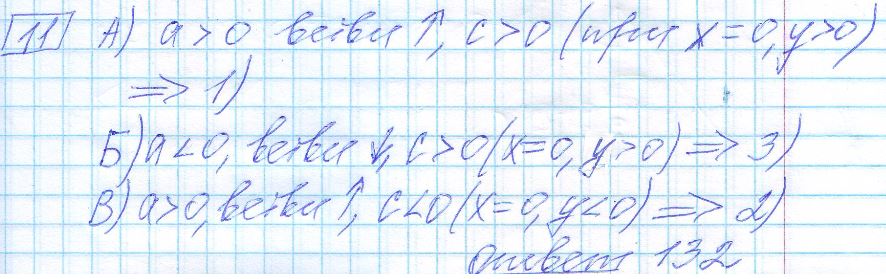 11 А) a>0 ветви ↑, c>0 (при x=0, y>0)
=> 1)
Б) a<0, ветви ↓, c>0 (x=0, y>0) => 3)
В) a>0, ветви ↑, c<0 (x=0, y<0) => 2)
ответ 132